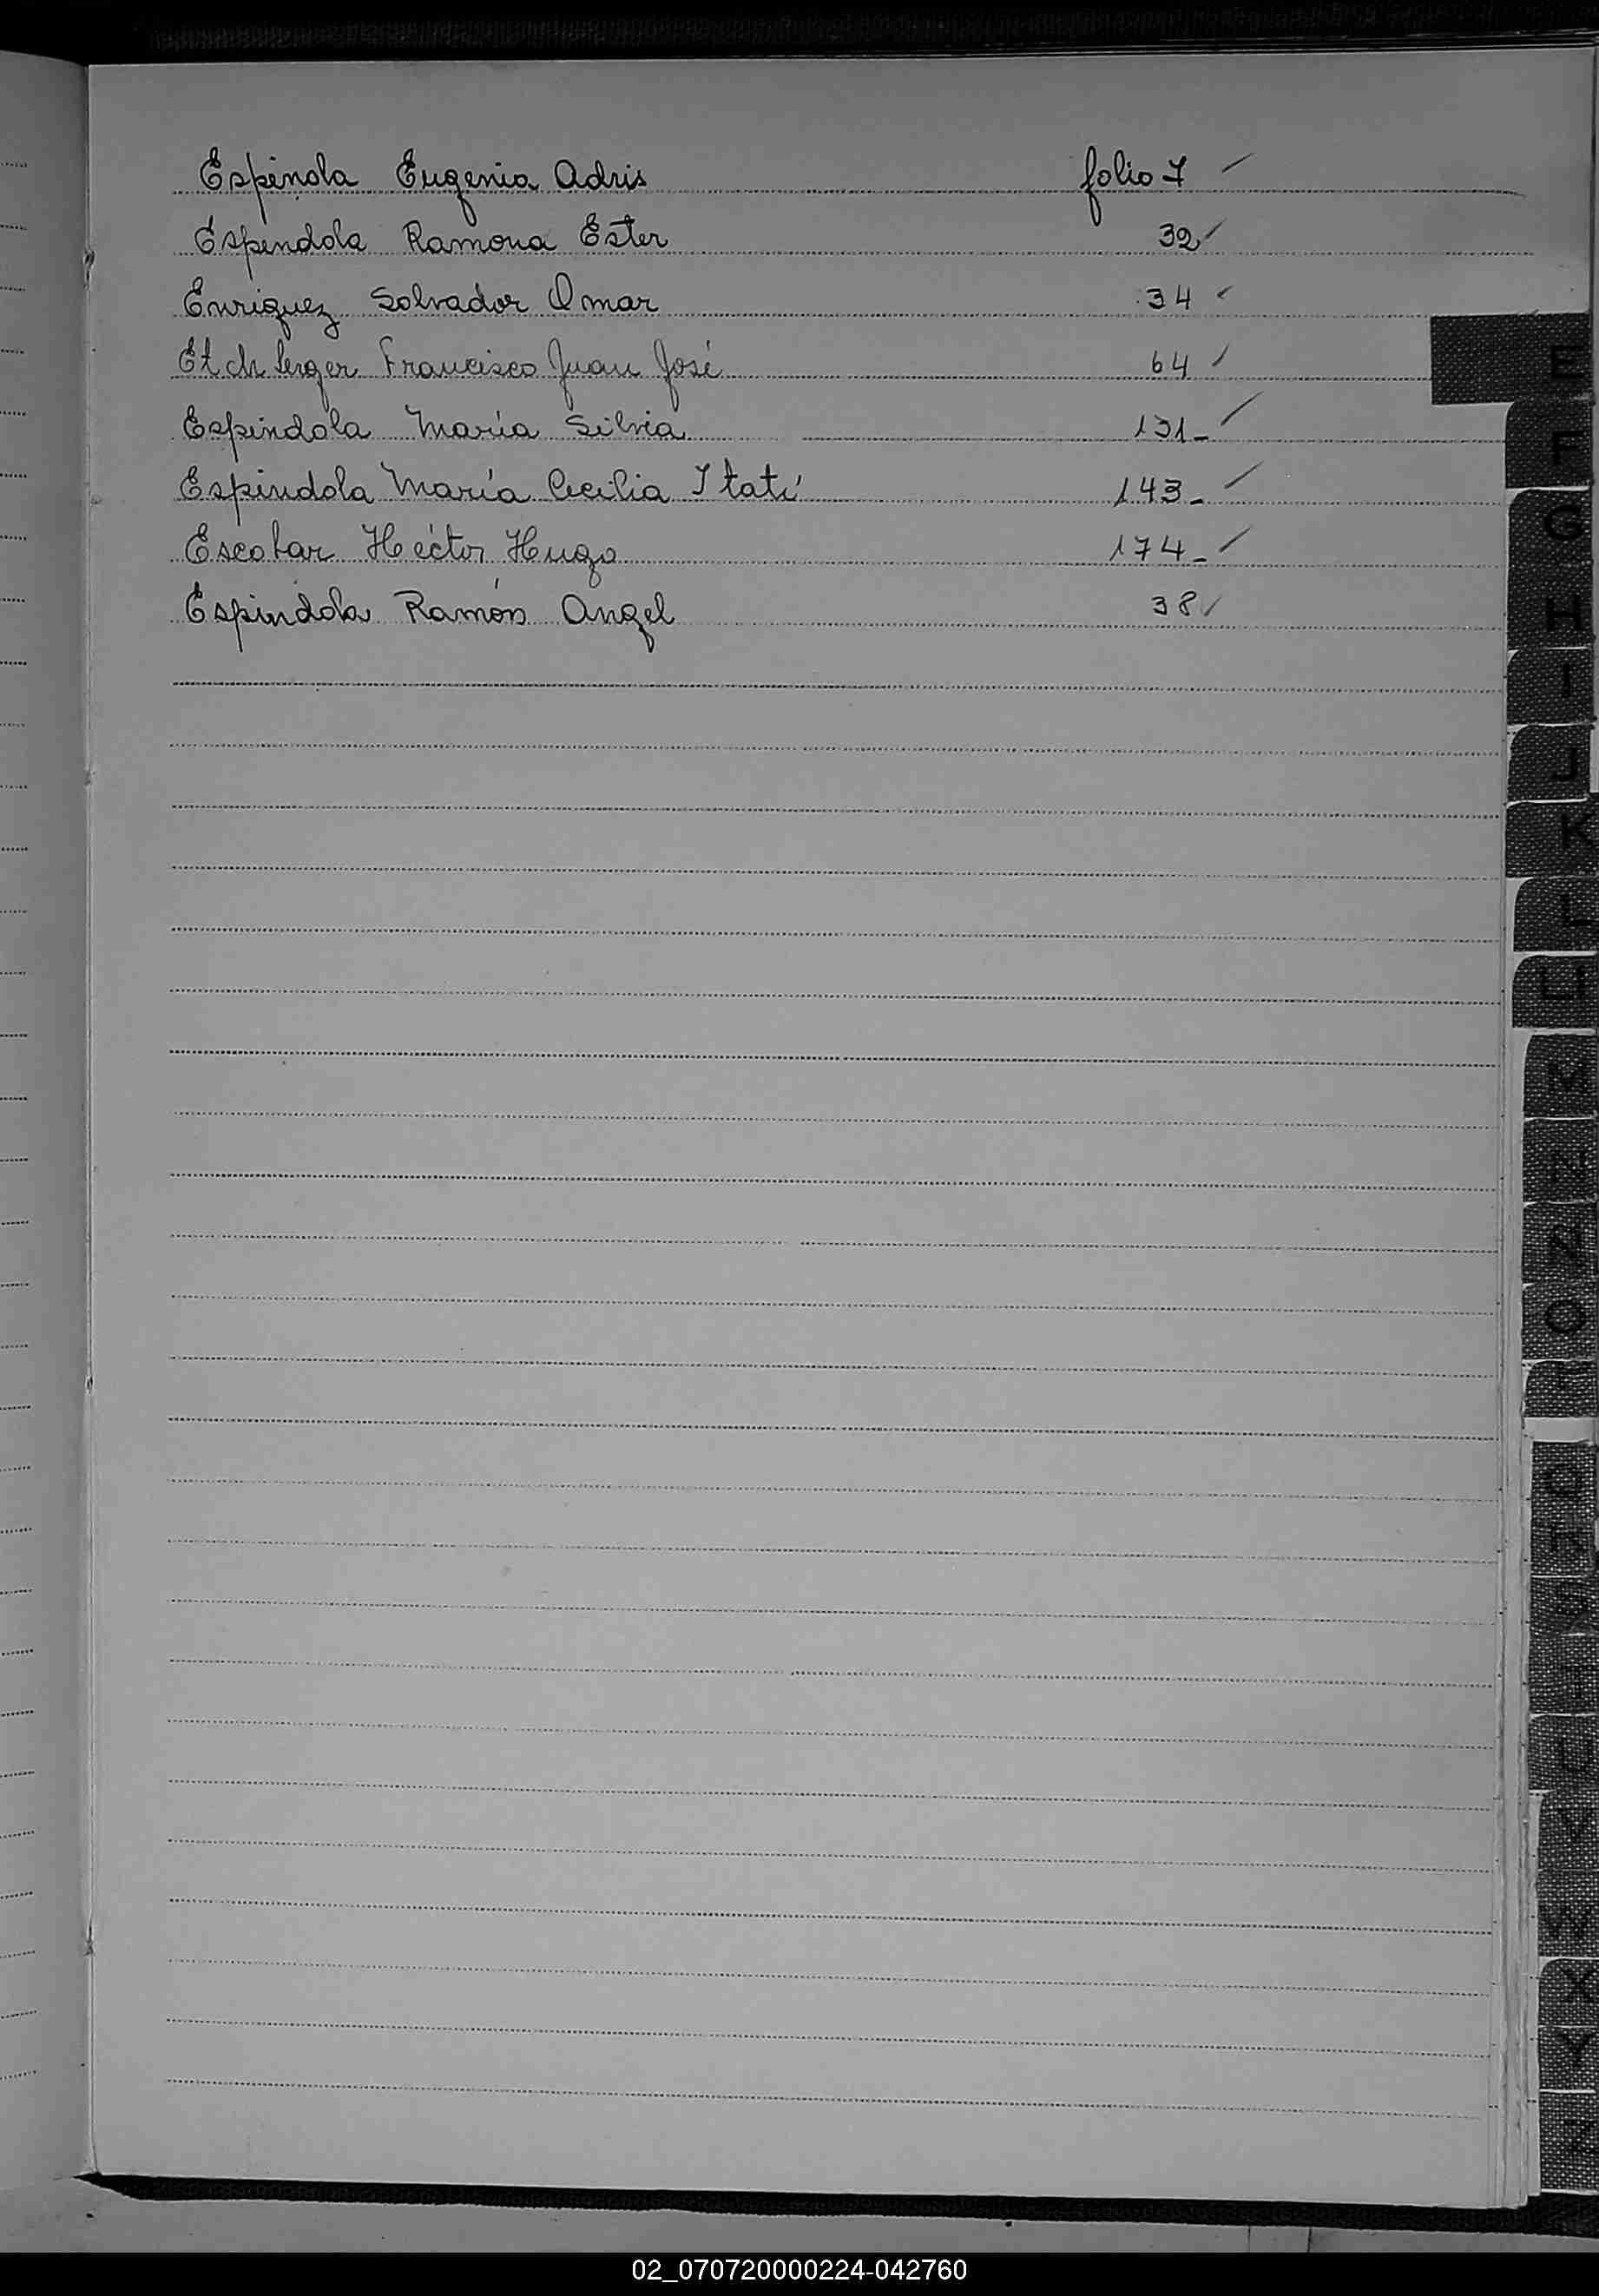 Espinola Eugenia Adris folio 7
Espindola Ramona Ester 32
Enriquez Salvador Omar 34
Etchberger Francisco Juan José 64
Espindola María Silvia 131-
Espindola María Cecilia Itatí 143-
Escobar Héctor Hugo 174-
Espindola Ramón Angel 38
E
F
G
H
I
J
K
L
LL
M
N
Ñ
O
P
Q
R
S
T
U
V
W
X
Y
Z
02_070720000224-042760